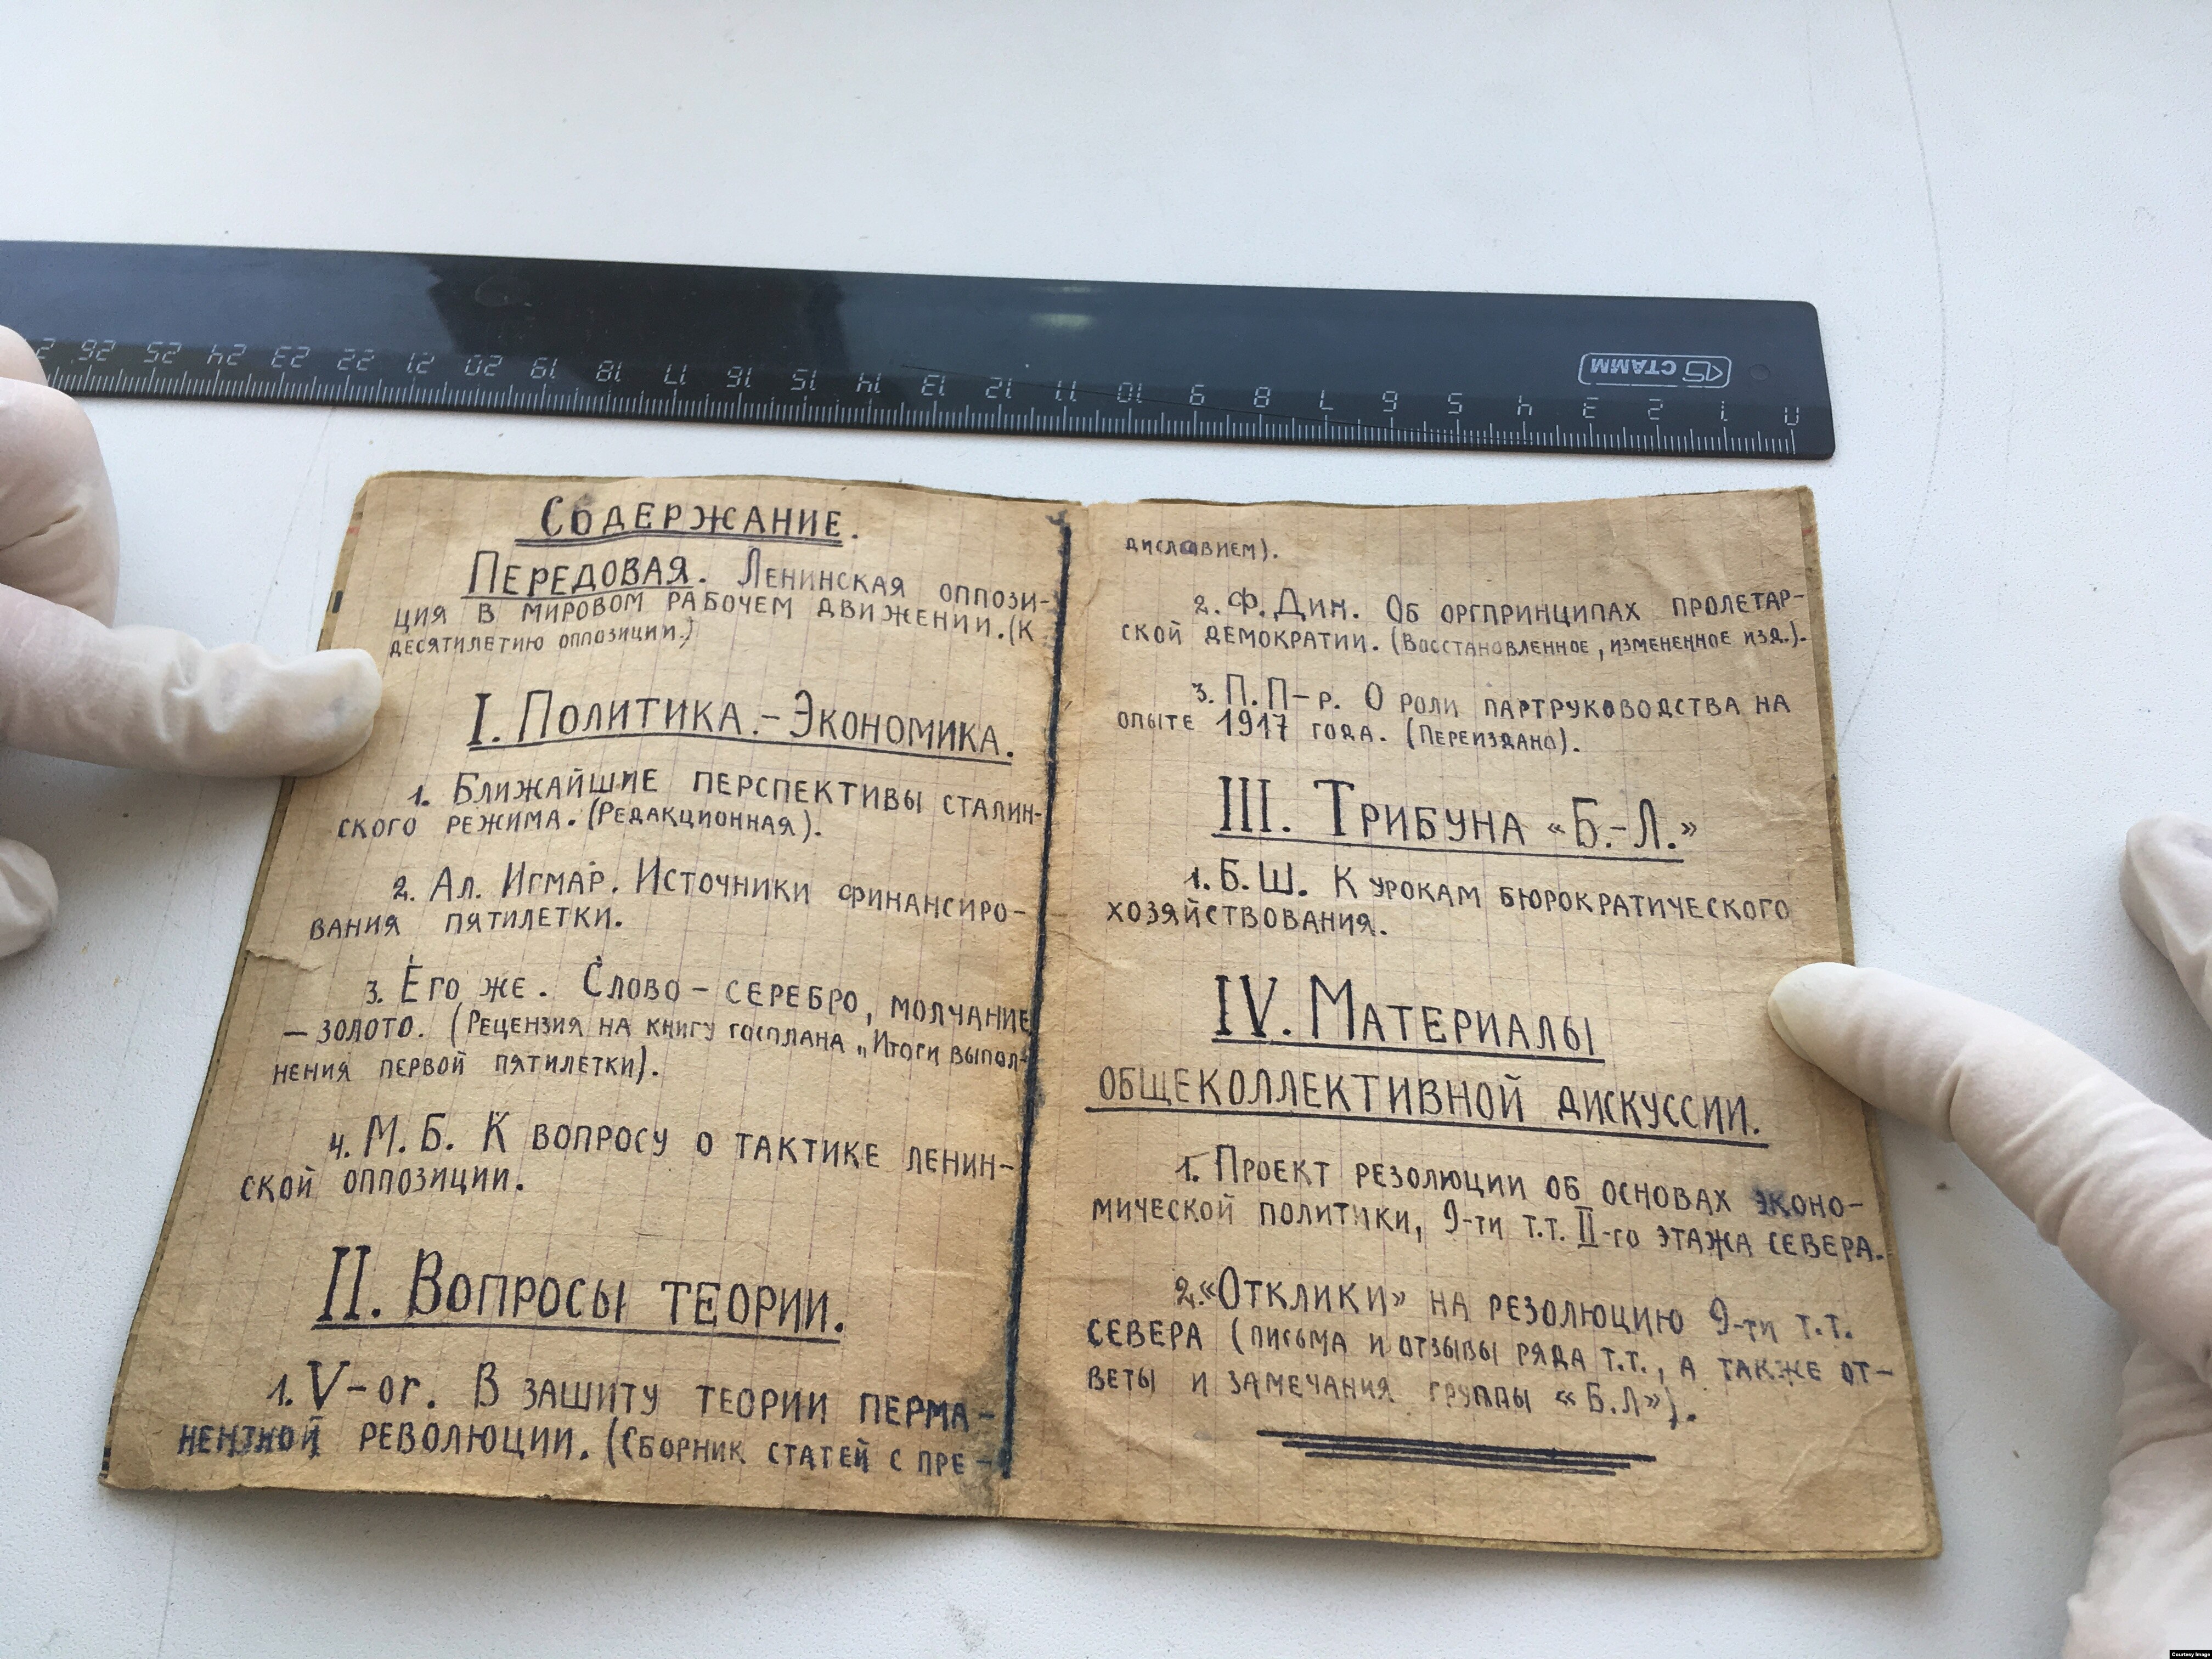 26 25 24 23 22 21 20 19 18 17 16 15 14 13 12 11 10 9 8 7 6 5 4 3 2 1 0
СТАММ
Содержание.
Передовая. Ленинская оппози-
ция в мировом рабочем движении. (К
десятилетию оппозиции.)
I. Политика.-Экономика.
1. Ближайшие перспективы сталин-
ского режима. (Редакционная).
2. Ал. Игмар. Источники финансиро-
вания пятилетки.
3. Его же. Слово - серебро, молчание
— золото. (Рецензия на книгу госплана „Итоги выпол-
нения первой пятилетки).
4. М. Б. К вопросу о тактике ленин-
ской оппозиции.
II. Вопросы теории.
1. V-ог. В защиту теории перма-
нентной революции. (Сборник статей с пре-
дисловием).
2. Ф. Дин. Об оргпринципах пролетар-
ской демократии. (Восстановленное, измененное изд.).
3. П. П-р. О роли партруководства на
опыте 1917 года. (Переиздано).
III. Трибуна «Б.-Л.»
1. Б. Ш. К урокам бюрократического
хозяйствования.
IV. Материалы
общеколлективной дискуссии.
1. Проект резолюции об основах эконо-
мической политики, 9-ти т.т. II-го этажа севера.
2. «Отклики» на резолюцию 9-ти т.т.
севера (письма и отзывы ряда т.т., а также от-
веты и замечания группы «Б.Л»).
Courtesy Image